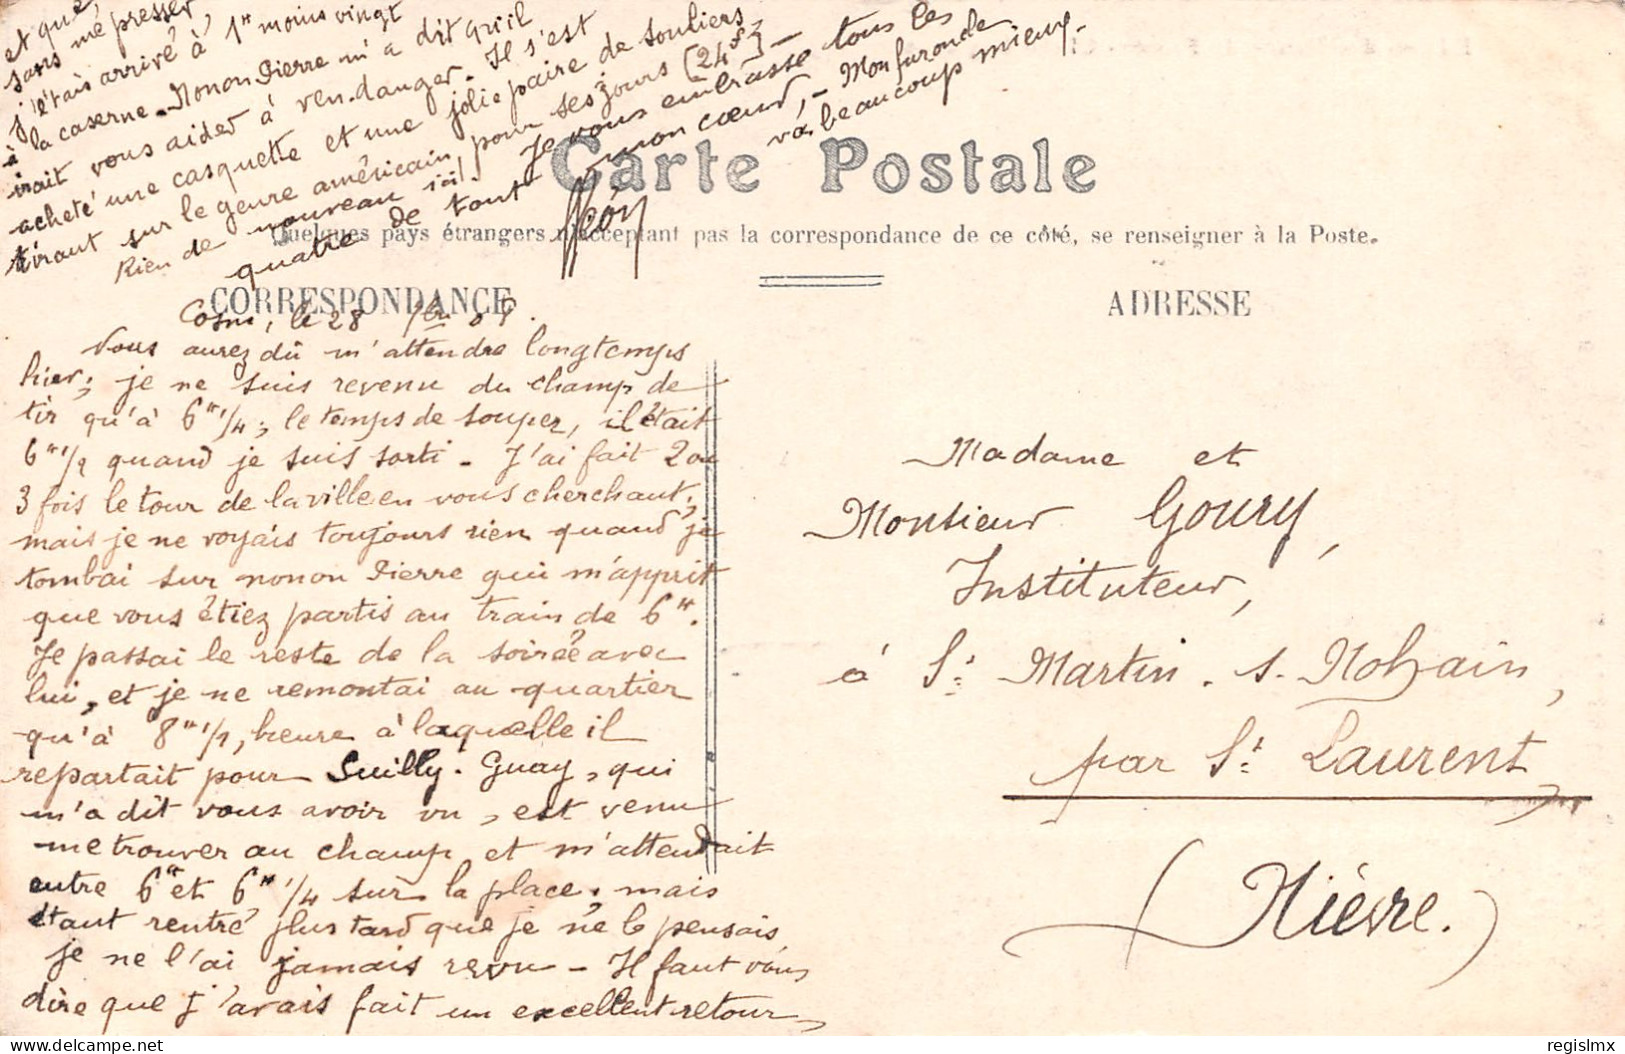 Carte Postale
Quelques pays étrangers n'acceptant pas la correspondance de ce côté, se renseigner à la Poste.
CORRESPONDANCE
ADRESSE
Cosne, le 28
Vous aurez dû m'attendre longtemps
hier; je ne suis revenu du champ de
tir qu'à 6ʰ 1/4; le temps de souper, il était
6ʰ 1/2 quand je suis sorti - J'ai fait 2 ou
3 fois le tour de la ville en vous cherchant;
mais je ne voyais toujours rien quand je
tombai sur nonon Pierre qui m'apprit
que vous étiez partis au train de 6ʰ.
Je passai le reste de la soirée avec
lui, et je ne remontai au quartier
qu'à 8ʰ 1/2, heure à laquelle il
repartait pour Suilly. Guay, qui
m'a dit vous avoir vu, est venu
me trouver au champ et m'attendait
entre 6ʰ et 6ʰ 1/4 sur la place; mais
étant rentré plus tard que je ne le pensais
je ne l'ai jamais revu - Il faut vous
dire que j'avais fait un excellent retour
et que,
sans me presser
j'étais arrivé à 1ʰ moins vingt
à la caserne - Nonon Pierre m'a dit qu'il
irait vous aider à vendanger. Il s'est
acheté une casquette et une jolie paire de souliers
tirant sur le genre américain, pour ses jours (24f) -
Rien de nouveau ici. Je vous embrasse tous les
quatre de tout mon cœur, - Mon furoncle
va beaucoup mieux. -
Léon
Madame et
Monsieur Goury,
Instituteur,
à St Martin. s. Nohain,
par St Laurent
(Nièvre.)
regislmx